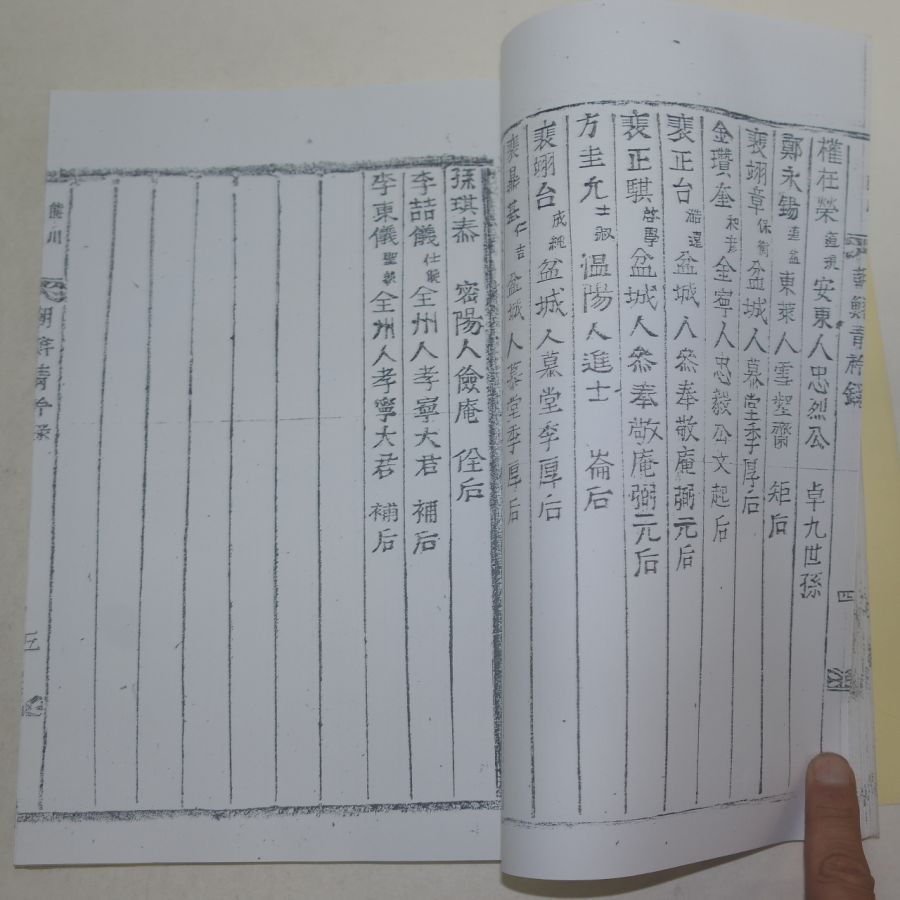 青衿錄
四
權在榮 安東人忠烈公 卓九世孫
鄭永錫 東萊人雲壑齋 矩后
裵翊章 保衡 盆城人慕堂季厚后
金瓚奎 金寧人忠毅公文起后
裵正台 浩遠 盆城人叅奉敬庵弼元后
裵正騏 啓學 盆城人叅奉敬庵弼元后
方圭允 士淑 溫陽人進士 崙后
裵翊台 成純 盆城人慕堂季厚后
裵 基 仁吉 盆城人慕堂季厚后
孫琪泰 密陽人儉庵 佺后
李喆儀 全州人孝寧大君 補后
李東儀 聖 全州人孝寧大君 補后
熊川
靑衿錄
五